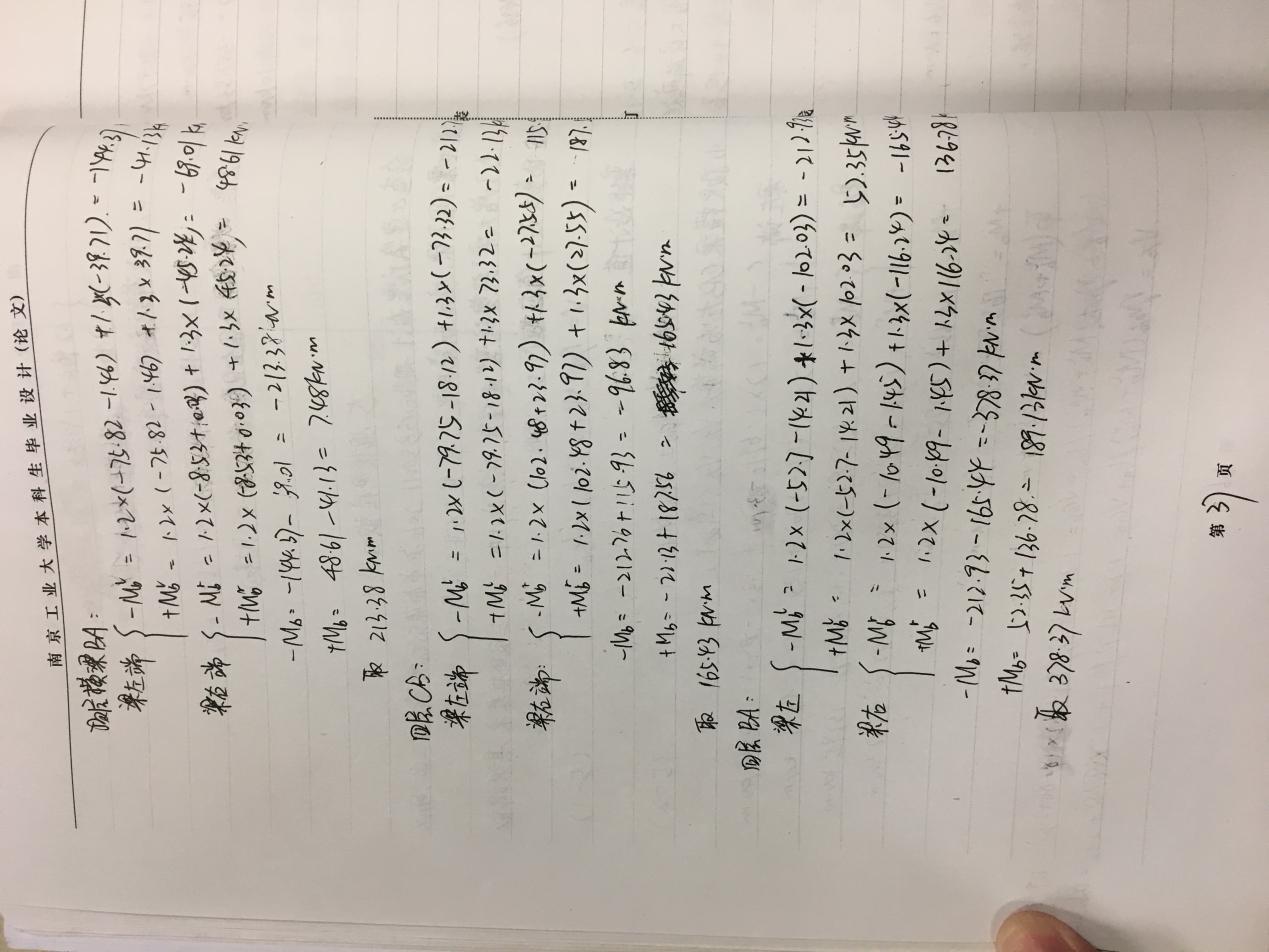 南京工业大学本科生毕业设计(论文)
四层横梁BA:
梁左端 { -Mb^l = 1.2×(-75.82-1.46) +1.3×(-39.71) = -144.37
+Mb^l = 1.2×(-75.82-1.46) +1.3×39.71 = -41.13k
梁右端 { -Mb^r = 1.2×(-8.53+0.03) +1.3×(-45.24) = -69.01k
+Mb^r = 1.2×(-8.53+0.03) +1.3×45.24 = 48.61kN·
-Mb = -144.37-69.01 = -213.38kN·m
+Mb = 48.61-41.13 = 7.48kN·m
取 213.38kN·m
四层CB:
梁左端 { -Mb^l = 1.2×(-79.75-18.12) +1.3×(-73.32) = -212.
+Mb^l = 1.2×(-79.75-18.12) +1.3×73.32 = -22.13k
梁右端: { -Mb^r = 1.2×(102.48+23.97) +1.3×(-27.55) = 115.
+Mb^r = 1.2×(102.48+23.97) +1.3×(27.55) = 187.
-Mb = -212.76+115.93 = -96.83 kN·m
+Mb = -22.13+187.56 = 165.43kN·m
取 165.43kN·m
BA:
梁左 { -Mb^l = 1.2×(-52.7-14.21) +1.3×(-102.03) = -212.93
+Mb^l = 1.2×(-52.7-14.21) +1.3×102.03 = 52.35kN·m
梁右 { -Mb^r = 1.2×(-10.49-1.45) +1.3×(-116.24) = -165.44
+Mb^r = 1.2×(-10.49-1.45) +1.3×116.24 = 136.78k
-Mb = -212.93-165.44 = -378.37kN·m
+Mb = 52.35+136.78 = 189.13kN·m
取 378.37kN·m
第 37 页